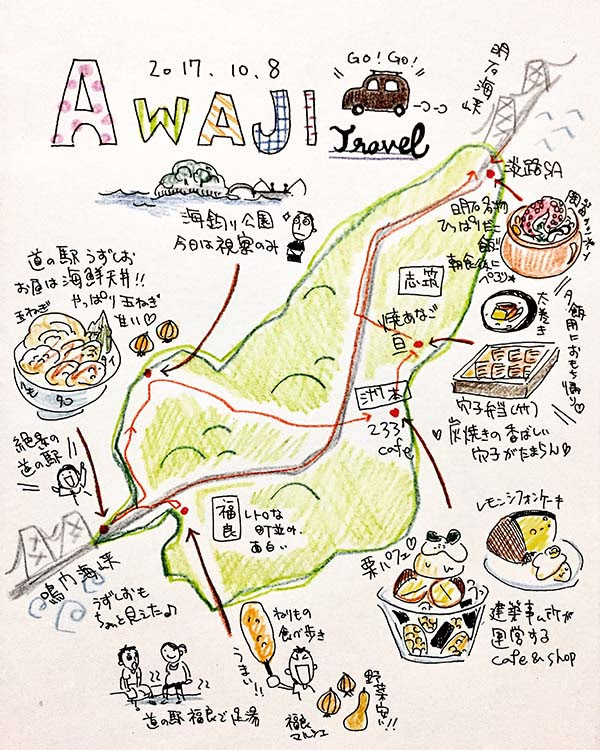 2017.10.8
AWAJI
GO! GO!
Travel
明石海峡
淡路SA
海釣り公園
今日は視察のみ
明石名物
ひっぱりだこ
飯
朝食後に
ペロリ
道の駅 うずしお
お昼は海鮮天丼!!
やっぱり玉ねぎ
甘い♡
玉ねぎ
タイ
タコ
志筑
焼あなご
旦
太巻き
夕飯用におもち帰り♡
穴子弁当(竹)
炭焼きの香ばしい
穴子がたまらん♡
洲本
233
cafe
絶景の
道の駅
福良
レトロな
町並み
面白い
鳴門海峡
うずしおも
ちょっと見えた♪
栗パフェ♡
レモンシフォンケーキ
建築事ム所が
運営する
cafe & shop
ねりもの
食べ歩き
うまい!!
道の駅 福良で足湯
福良
マルシェ
野菜安い!!